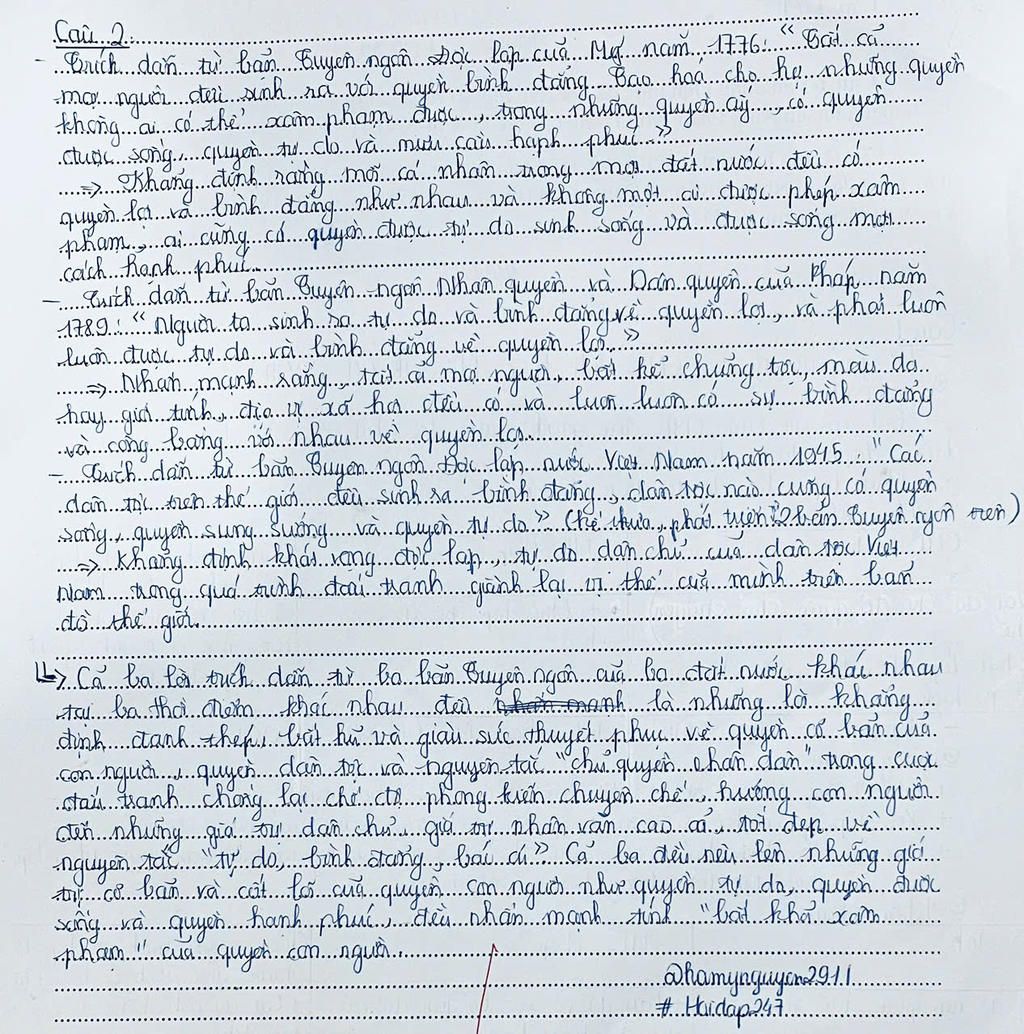 Câu 2:
- Trích dẫn từ bản Tuyên ngôn Độc lập của Mỹ năm 1776: "Tất cả
mọi người đều sinh ra với quyền bình đẳng. Tạo hoá cho họ những quyền
không ai có thể xâm phạm được, trong những quyền ấy, có quyền
được sống, quyền tự do và mưu cầu hạnh phúc."
=> Khẳng định rằng mỗi cá nhân trong mọi đất nước đều có
quyền lợi và bình đẳng như nhau và không một ai được phép xâm
phạm, ai cũng có quyền được tự do sinh sống và được sống một
cách hạnh phúc.
- Trích dẫn từ bản Tuyên ngôn Nhân quyền và Dân quyền của Pháp năm
1789: "Người ta sinh ra tự do và bình đẳng về quyền lợi, và phải luôn
luôn được tự do và bình đẳng về quyền lợi."
=> Nhấn mạnh rằng, tất cả mọi người, bất kể chủng tộc, màu da
hay giới tính, địa vị xã hội đều có và luôn luôn có sự bình đẳng
và công bằng với nhau về quyền lợi.
- Trích dẫn từ bản Tuyên ngôn Độc lập nước Việt Nam năm 1945: "Các
dân tộc trên thế giới đều sinh ra bình đẳng, dân tộc nào cũng có quyền
sống, quyền sung sướng và quyền tự do" (kế thừa, phát triển 2 bản Tuyên ngôn trên)
=> Khẳng định khát vọng độc lập, tự do dân chủ của dân tộc Việt
Nam trong quá trình đấu tranh giành lại vị thế của mình trên bản
đồ thế giới.
=> Cả ba lời trích dẫn từ ba bản Tuyên ngôn của ba đất nước khác nhau
tại ba thời điểm khác nhau đều nhấn mạnh là những lời khẳng
định đanh thép, bất hủ và giàu sức thuyết phục về quyền cơ bản của
con người, quyền dân tộc và nguyên tắc "chủ quyền nhân dân" trong cuộc
đấu tranh chống lại chế độ phong kiến chuyên chế, hướng con người
đến những giá trị dân chủ, giá trị nhân văn cao cả, tốt đẹp về
nguyên tắc "tự do, bình đẳng, bác ái" Cả ba đều nêu lên những giá
trị cơ bản và cốt lõi của quyền con người như quyền tự do, quyền được
sống và quyền hạnh phúc, đều nhấn mạnh tính "bất khả xâm
phạm" của quyền con người.
@hamynguyen2911
# Hoidap247